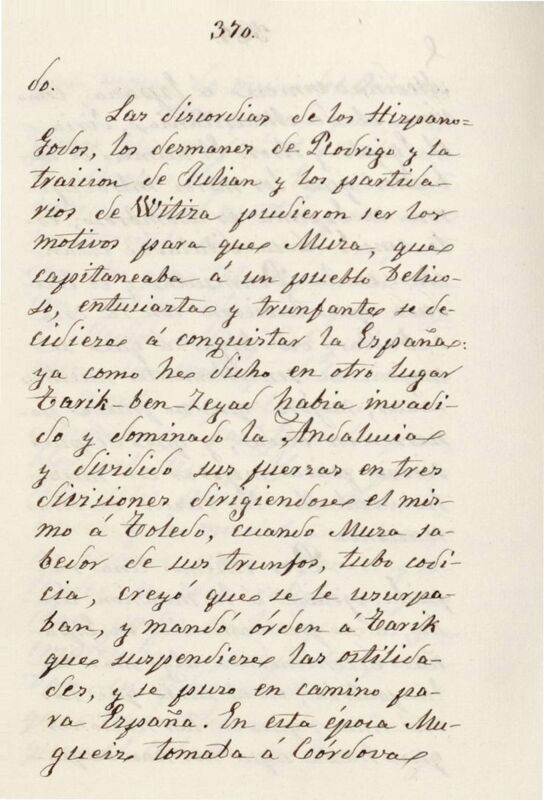 370.
do.
Las discordias de los Hispano=
Godos, los desmanes de Rodrigo y la
traicion de Julian y los partida-
rios de Witiza pudieron ser los
motivos para que Muza, que
capitaneaba á un pueblo belico-
so, entusiasta y trunfante se de-
cidiera á conquistar la España:
ya como he dicho en otro lugar
Tarik-ben-Zeyad habia invadi-
do y dominado la Andalucia
y dividido sus fuerzas en tres
divisiones dirigiendose el mis-
mo á Toledo, cuando Muza sa-
bedor de sus trunfos, tubo codi-
cia, creyó que se le usurpa-
ban, y mandó órden á Tarik
que suspendiera las ostilida-
des, y se puso en camino pa-
ra España. En esta época Mu-
gueiz tomaba á Córdova